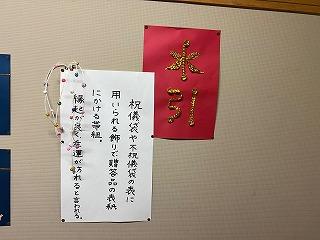 水引
祝儀袋や不祝儀袋の表に
用いられる飾りで贈答品の表紙
にかける帯紐。
縁起が良く幸運が訪れると言われる。